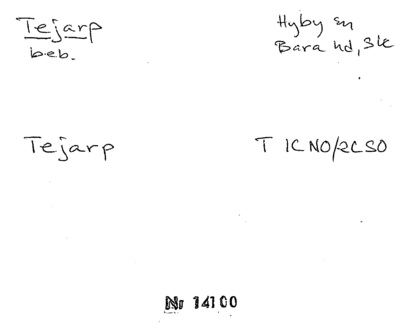 Tejarp
beb.
Hyby sn
Bara hd, Sk
Tejarp
T 1C NO/2C SO
Nr 14100